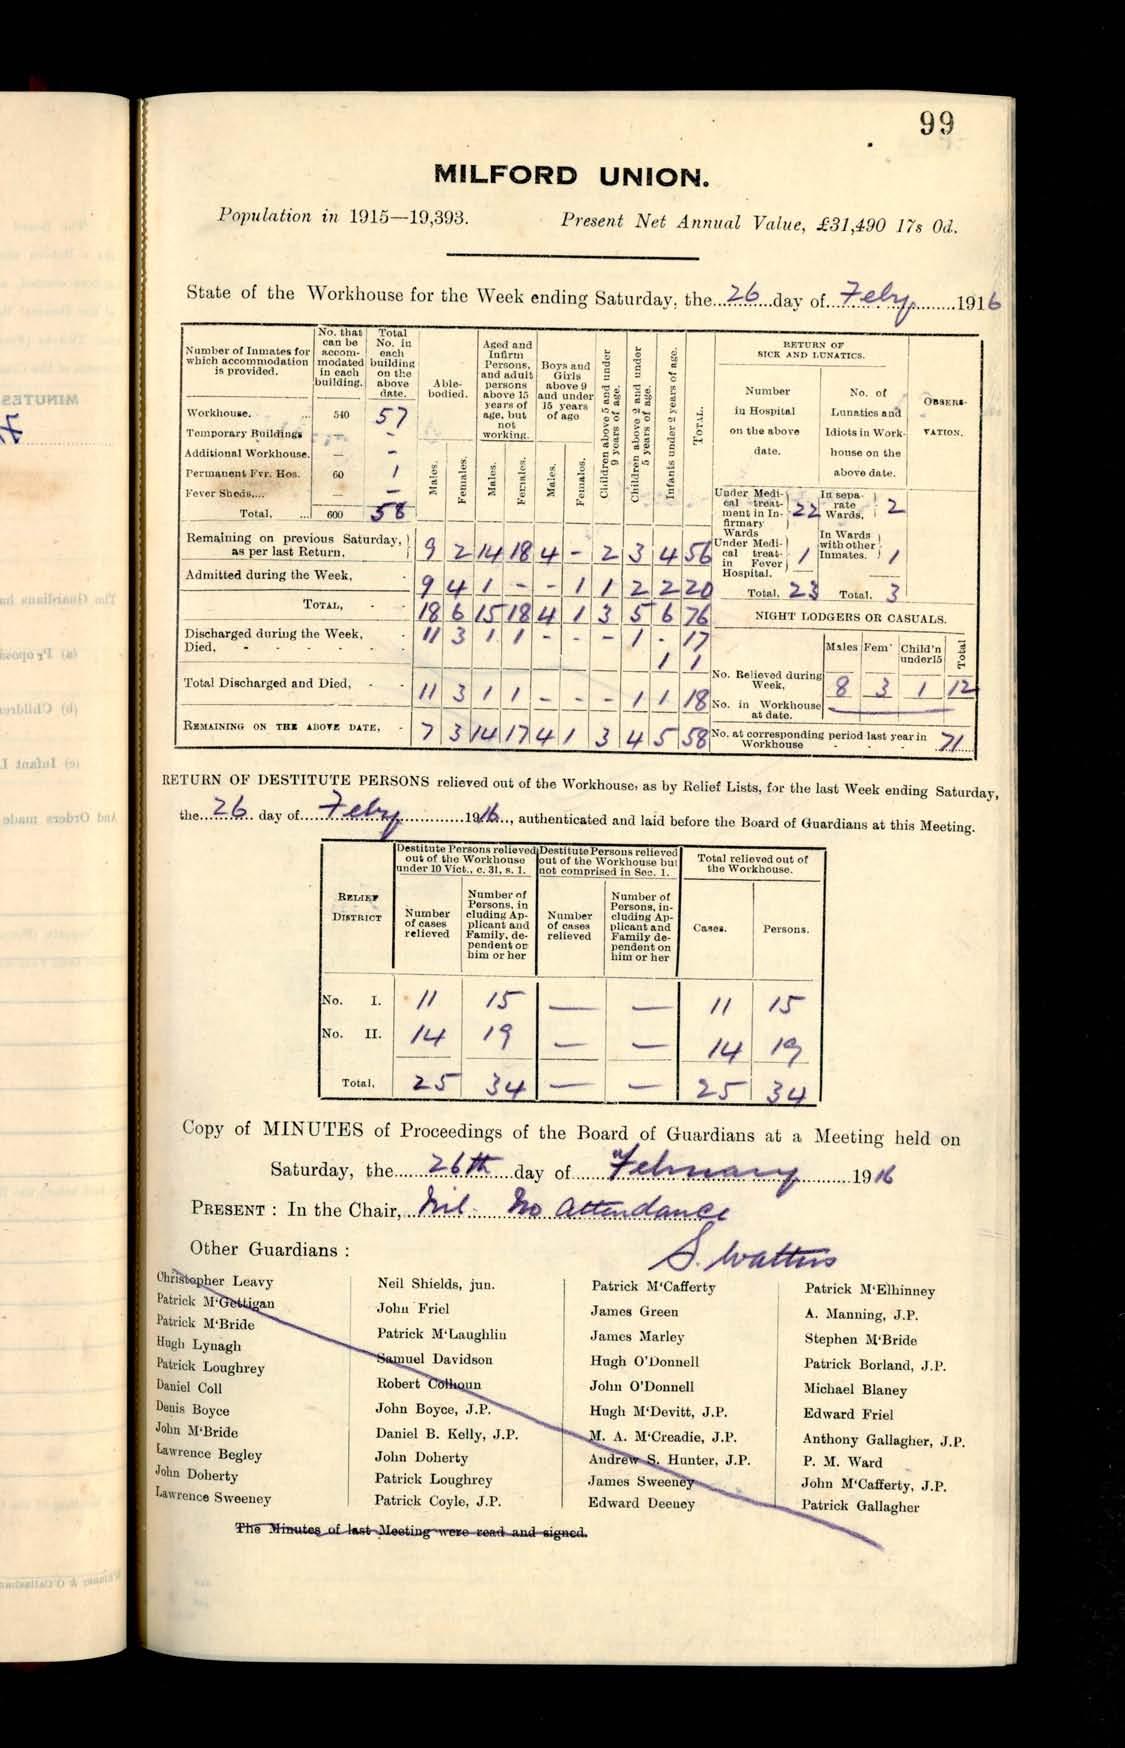 99
MILFORD UNION.
Population in 1915—19,393. Present Net Annual Value, £31,490 17s 0d.
State of the Workhouse for the Week ending Saturday, the 26 day of Feby 1916
Number of Inmates for which accommodation is provided. No. that can be accommodated in each building. Total No. in each building on the above date. Able-bodied. Aged and Infirm Persons, and adult persons above 15 years of age, but not working. Boys and Girls above 9 and under 15 years of age Children above 5 and under 9 years of age. Children above 2 and under 5 years of age. Infants under 2 years of age. TOTAL.
Males. Females. Males. Females. Males. Females.
Workhouse. ... 540 57
Temporary Buildings — -
Additional Workhouse. — -
Permanent Fvr. Hos. 60 1
Fever Sheds.... — —
Total, ... 600 58
Remaining on previous Saturday, as per last Return, 9 2 14 18 4 - 2 3 4 56
Admitted during the Week, - 9 4 1 - - 1 1 2 2 20
TOTAL, - - 18 6 15 18 4 1 3 5 6 76
Discharged during the Week, - 11 3 1 1 - - - 1 - 17
Died, - - - - - - 1 1
Total Discharged and Died, - - 11 3 1 1 - - - 1 1 18
REMAINING ON THE ABOVE DATE, - 7 3 14 17 4 1 3 4 5 58
RETURN OF SICK AND LUNATICS.
Number in Hospital on the above date.
No. of Lunatics and Idiots in Workhouse on the above date.
OBSERVATION.
Under Medical treatment in Infirmary Wards 22
In separate Wards, 2
Under Medical treat- in Fever Hospital. 1
In Wards with other Inmates. 1
Total, 23 Total. 3
NIGHT LODGERS OR CASUALS.
Males Fem' Child'n under15 Total
No. Relieved during Week, 8 3 1 12
No. in Workhouse at date.
No. at corresponding period last year in Workhouse - - - 71
RETURN OF DESTITUTE PERSONS relieved out of the Workhouse, as by Relief Lists, for the last Week ending Saturday,
the 26 day of Feby 1916, authenticated and laid before the Board of Guardians at this Meeting.
RELIEF DISTRICT
Destitute Persons relieved out of the Workhouse under 10 Vict., c. 31, s. 1.
Destitute Persons relieved out of the Workhouse but not comprised in Sec. 1.
Total relieved out of the Workhouse.
Number of cases relieved
Number of Persons, including Applicant and Family, dependent on him or her
Number of cases relieved
Number of Persons, including Applicant and Family dependent on him or her
Cases. Persons.
No. I. 11 15 — — 11 15
No. II. 14 19 — — 14 19
Total, 25 34 — — 25 34
Copy of MINUTES of Proceedings of the Board of Guardians at a Meeting held on
Saturday, the 26th day of February 1916
PRESENT : In the Chair, Nil. No attendance
S. Watters
Other Guardians :
Christopher Leavy
Patrick M'Gettigan
Patrick M'Bride
Hugh Lynagh
Patrick Loughrey
Daniel Coll
Denis Boyce
John M'Bride
Lawrence Begley
John Doherty
Lawrence Sweeney
Neil Shields, jun.
John Friel
Patrick M'Laughlin
Samuel Davidson
Robert Colhoun
John Boyce, J.P.
Daniel B. Kelly, J.P.
John Doherty
Patrick Loughrey
Patrick Coyle, J.P.
Patrick M'Cafferty
James Green
James Marley
Hugh O'Donnell
John O'Donnell
Hugh M'Devitt, J.P.
M. A. M'Creadie, J.P.
Andrew S. Hunter, J.P.
James Sweeney
Edward Deeney
Patrick M'Elhinney
A. Manning, J.P.
Stephen M'Bride
Patrick Borland, J.P.
Michael Blaney
Edward Friel
Anthony Gallagher, J.P.
P. M. Ward
John M'Cafferty, J.P.
Patrick Gallagher
The Minutes of last Meeting were read and signed.